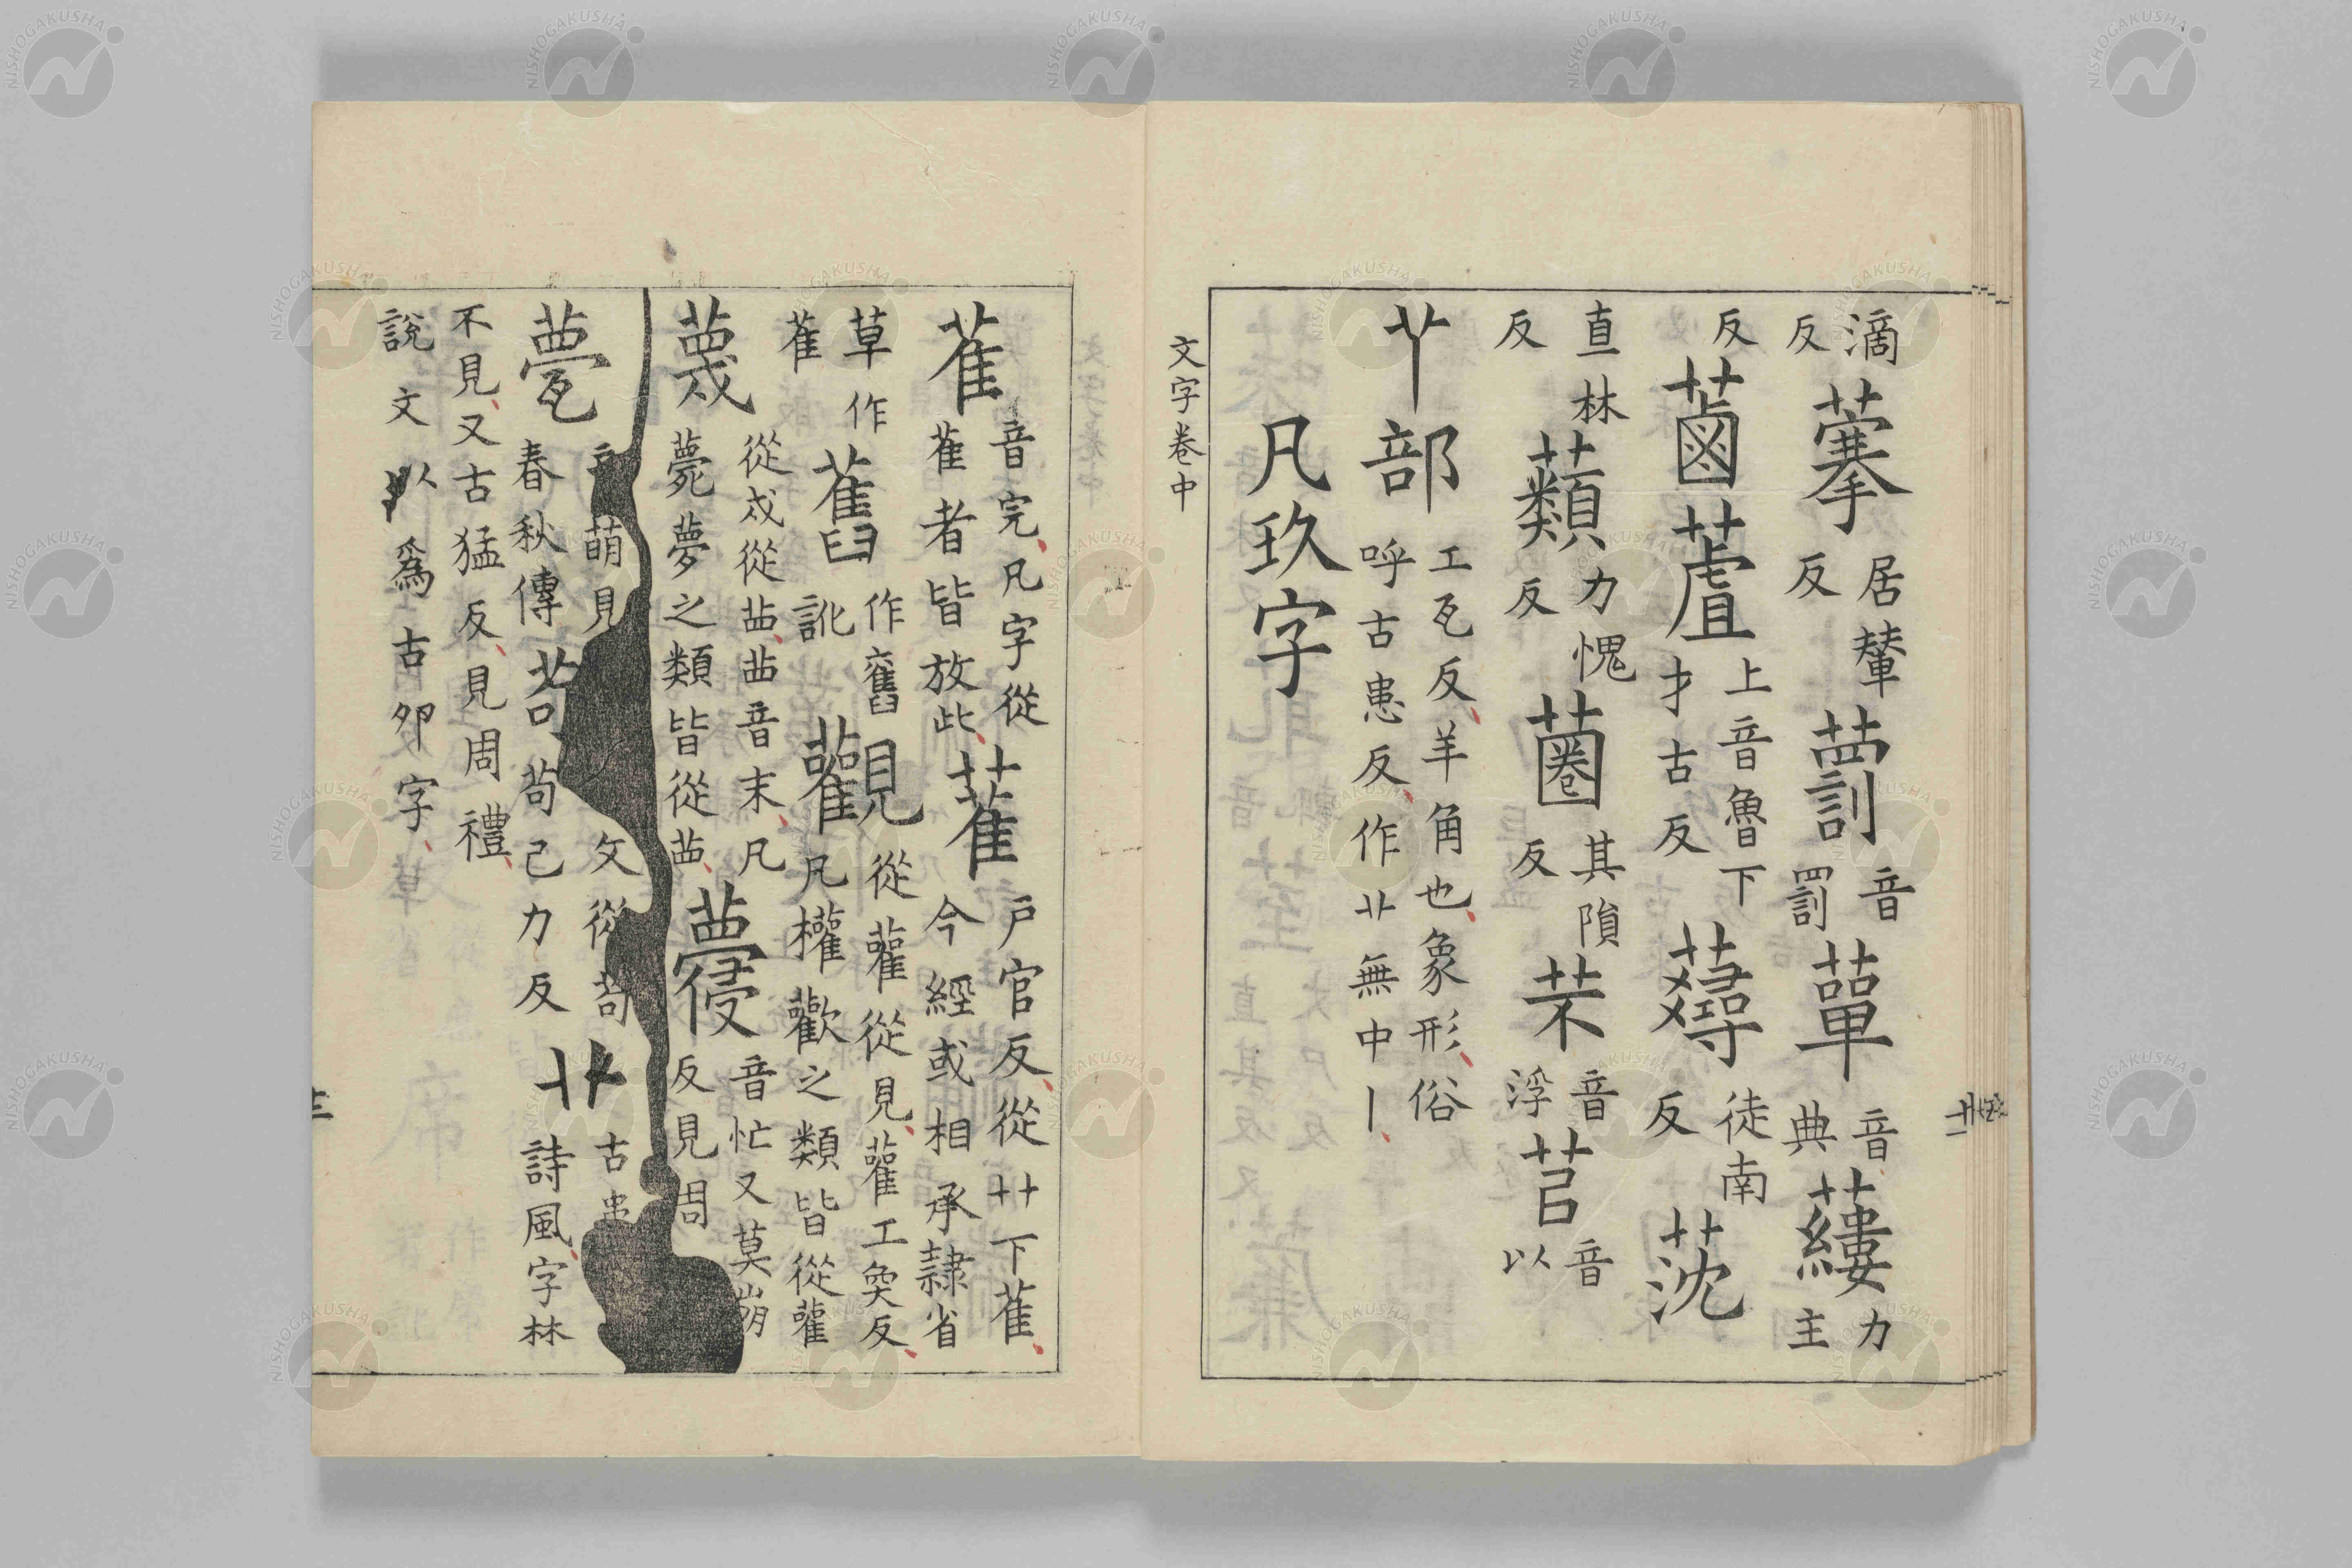 滴反 居輦反 藅 音罰 蕇 音典 力主
反 蓾蔖 上音魯下才古反 蕁 徒南反 莐
直林反 蘱 力愧反 蔨 其隕反 芣 音浮 苢 音以
𦫳部 工瓦反羊角也象形俗呼古患反作丱無中丨
凡玖字
文字卷中
萑 音完凡字從萑者皆放此 雈 户官反從卝下萑今經或相承隸省
草作萑 舊 作舊訛 觀 從雚從見雚工奐反凡權歡之類皆從雚
蔑 從戍從苜苜音末凡薨夢之類皆從苜 音忙又莫崩反見周
甍 萌見春秋傳 茍 文從茍茍己力反 丱 古患詩風字林
不見又古猛反見周禮說文以爲古卵字